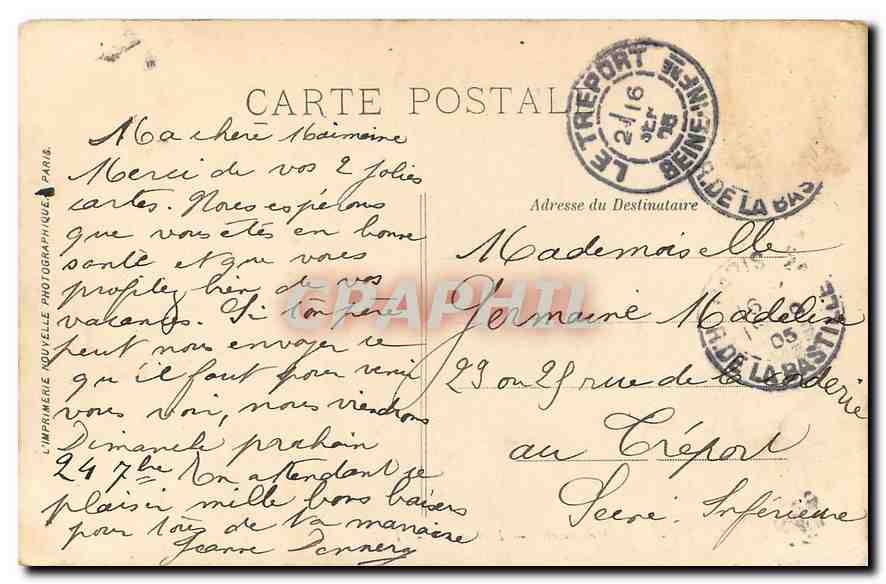 CARTE POSTALE
LE TREPORT
SEINE-INFRE
16
05
R. DE LA BAS
Adresse du Destinataire
Ma chère
Merci de vos 2 jolies
cartes. Nous espérons
que vous êtes en bonne
santé et que vous
profitez bien de vos
vacances. Si ton père
peut nous envoyer ce
qu'il faut pour venir
vous voir, nous viendrons
Dimanche prochain
24 7bre En attendant ce
plaisir mille bons baisers
pour tous de ta
Jeanne
Mademoiselle
Germaine Madeline
29 ou 25 rue de la Corderie
au Tréport
Seine-Inférieure
16
05
R. DE LA BASTILLE
L'IMPRIMERIE NOUVELLE PHOTOGRAPHIQUE, PARIS.
CPAPHIL